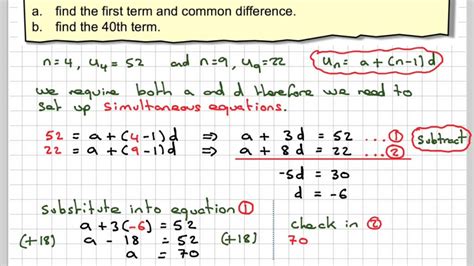 a. find the first term and common difference.
b. find the 40th term.
n=4, u₄ = 52 and n=9, u₉=22 uₙ = a+(n-1)d
we require both a and d therefore we need to
set up simultaneous equations.
52 = a+(4-1)d ⇒ a + 3d = 52 ...① Subtract
22 = a+(9-1)d ⇒ a + 8d = 22 ...②
-5d = 30
d = -6
substitute into equation ①
a+3(-6) = 52
(+18) a - 18 = 52 (+18)
a = 70
check in ②
70